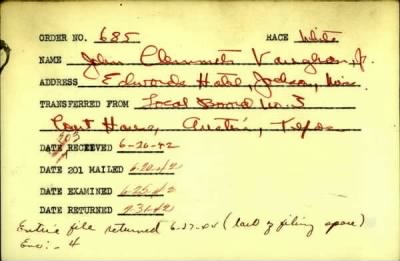 ORDER NO. 685 RACE White
NAME John Clemmets Vaughan, Jr.
ADDRESS Edwards Hotel, Jackson, Miss.
TRANSFERRED FROM Local Board No. 3
Court House, Austin, Texas
DATE RECEIVED 6-20-42
DATE 201 MAILED 6-20-42
DATE EXAMINED 6-25-42
DATE RETURNED
Entire file returned (lack of filing space)
Enc: - 4